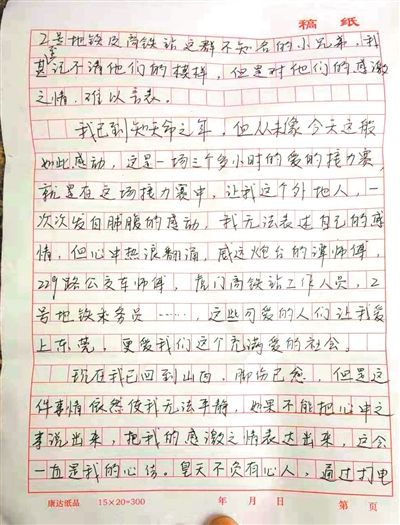 稿 纸
2号地铁及高铁站这群不知名的小兄弟，我
甚至记不清他们的模样，但是对他们的感激
之情，难以言表。
我已到知天命之年，但从未像今天这般
如此感动，这是一场三个多小时的爱的接力赛，
就是在这场接力赛中，让我这个外地人，一
次次发自肺腑的感动，我无法表述自己的感
情，但心中热浪翻涌，威远炮台的谭师傅，
229路公交车师傅，虎门高铁站工作人员，2
号地铁乘务员……，这些可爱的人们让我爱
上东莞，更爱我们这个充满爱的社会。
现在我已回到山西，脚伤已愈，但是这
件事情依然使我无法平静，如果不能把心中之
事说出来，把我的感激之情表达出来，这会
一直是我的心结。皇天不负有心人，通过打电
康达纸品 15×20=300 年 月 日 第 页